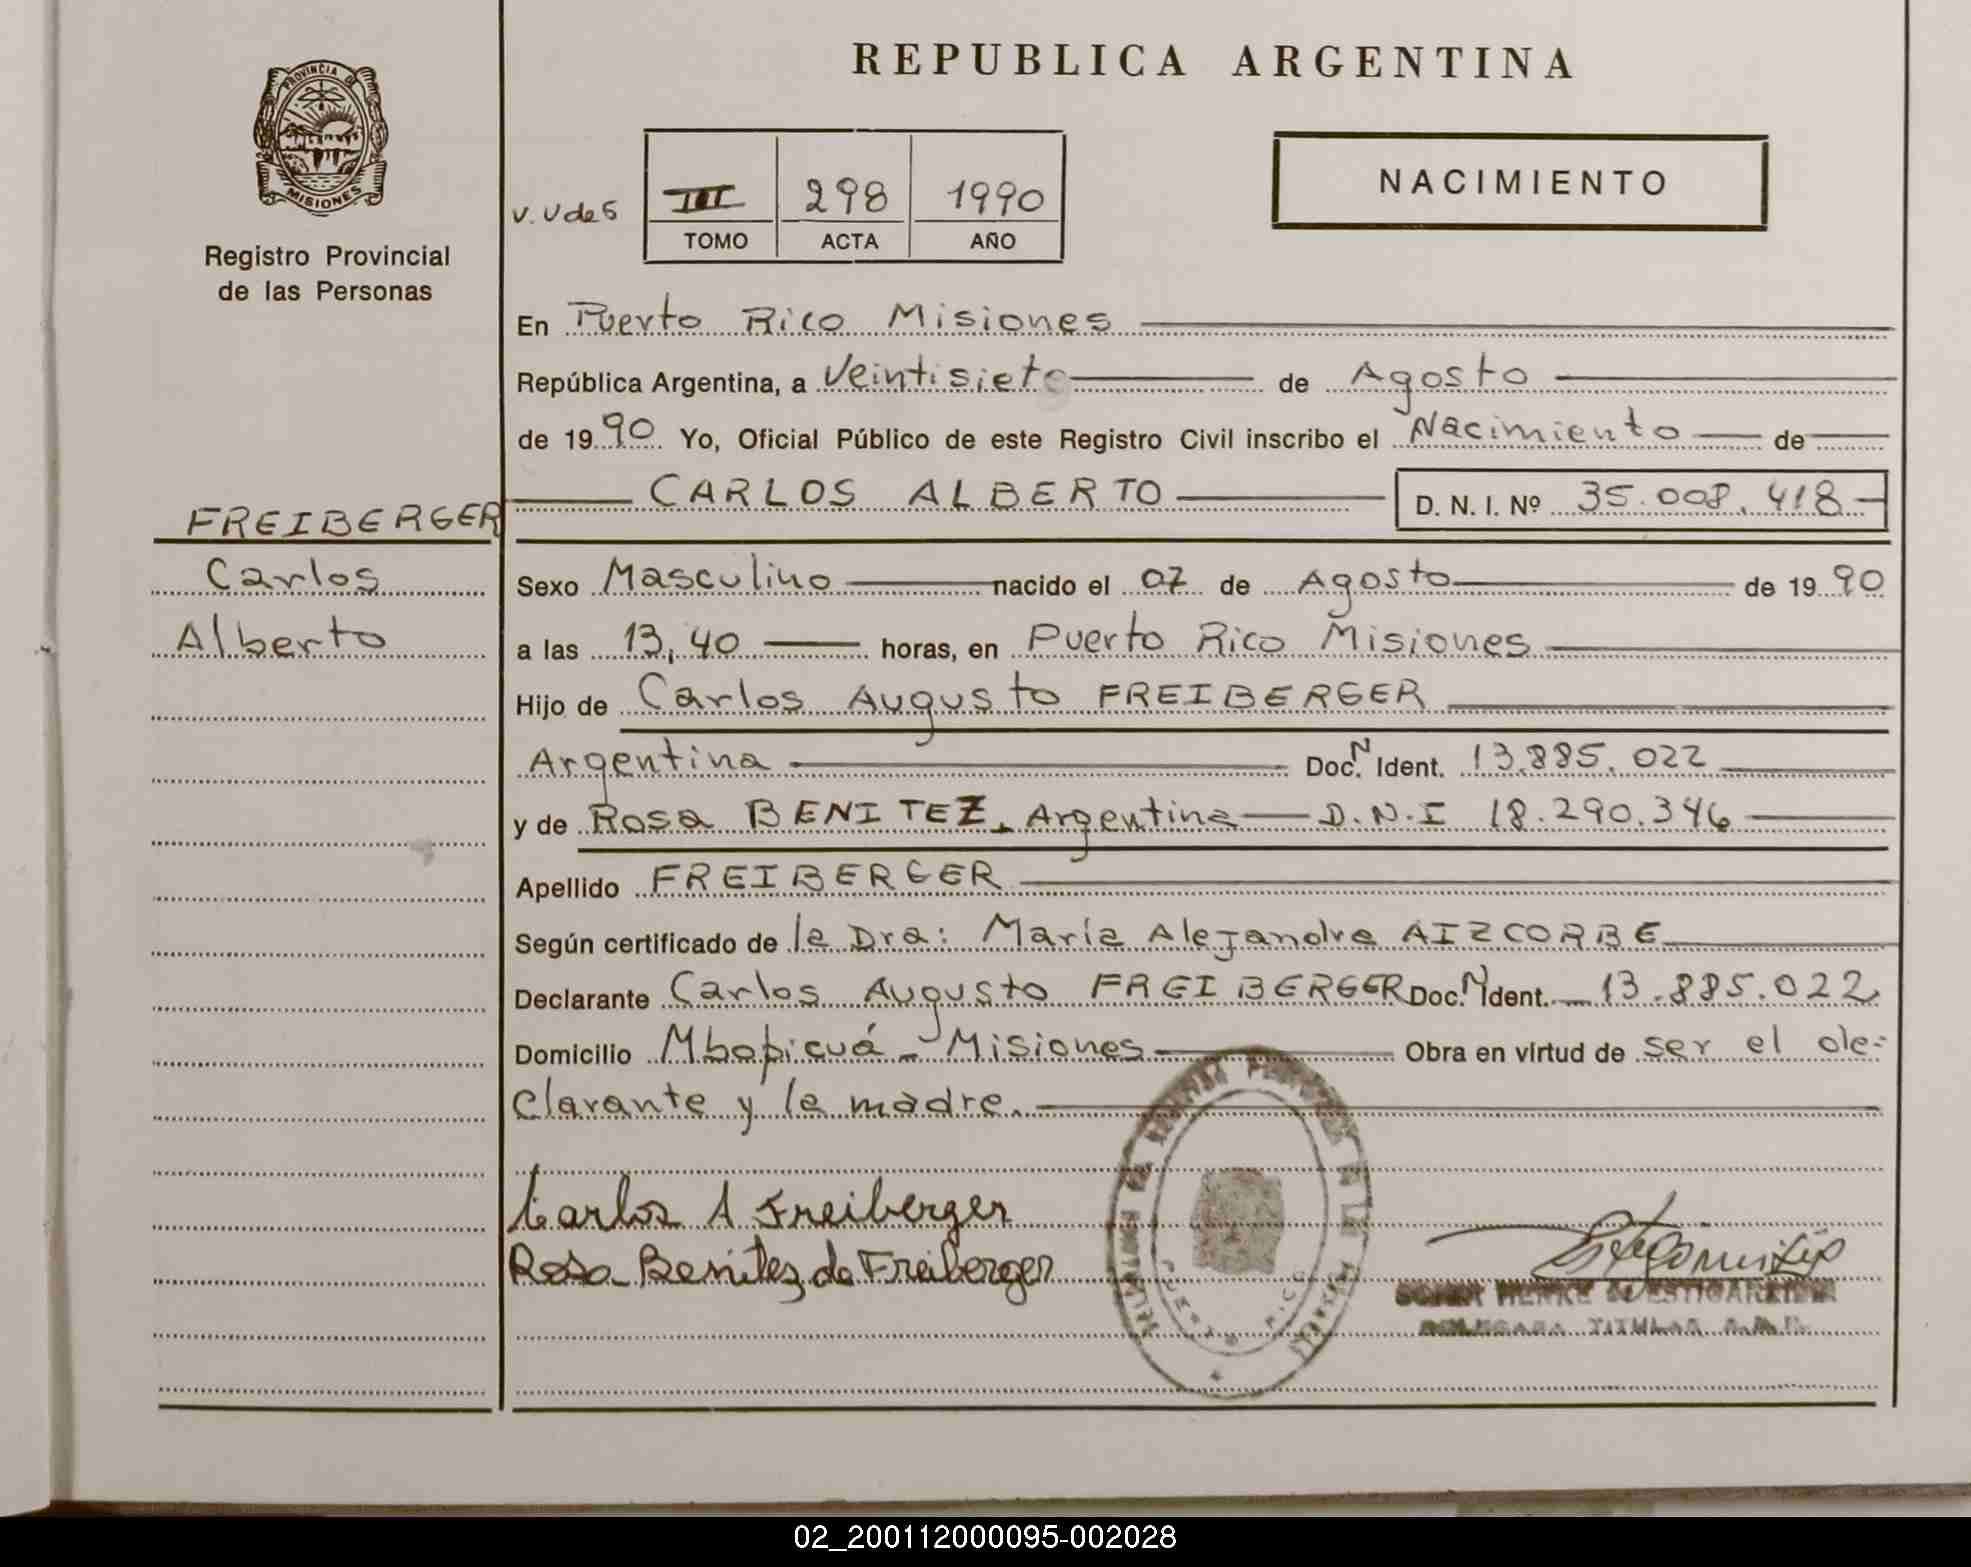 REPUBLICA ARGENTINA
PROVINCIA DE
MISIONES
Registro Provincial
de las Personas
NACIMIENTO
III 298 1990
TOMO ACTA AÑO
En Puerto Rico Misiones
República Argentina, a Veintisiete de Agosto
de 1990 Yo, Oficial Público de este Registro Civil inscribo el Nacimiento de
CARLOS ALBERTO D. N. I. Nº 35.008.418
FREIBERGER
Carlos
Alberto
Sexo Masculino nacido el 07 de Agosto de 1990
a las 13,40 horas, en Puerto Rico Misiones
Hijo de Carlos Augusto FREIBERGER
Argentina Doc. N Ident. 13.885.022
y de Rosa BENITEZ. Argentina D.N.I 18.290.346
Apellido FREIBERGER
Según certificado de la Dra: María Alejandra AIZCORBE
Declarante Carlos Augusto FREIBERGER Doc. N Ident. 13.885.022
Domicilio Mbopicuá - Misiones Obra en virtud de ser el de-
clarante y la madre.
Carlos A Freiberger
Rosa Benitez de Freiberger
PUERTO RICO
TITULAR
02_200112000095-002028